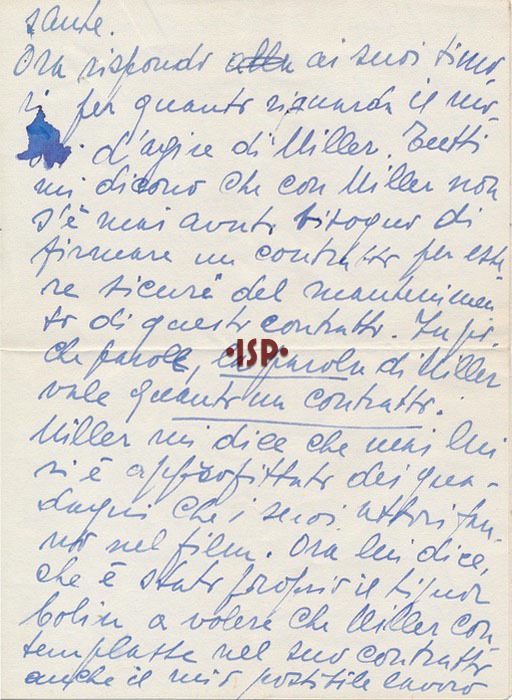 sante.
Ora rispondo alla ai suoi timo-
ri per quanto riguarda il mo-
d'agire di Miller. Tutti
mi dicono che con Miller non
s'è mai avuto bisogno di
firmare un contratto per esse-
re sicuri del mantenimen-
to di questo contratto. In po-
che parole, la parola di Miller
·ISP·
vale quanto un contratto.
Miller mi dice che mai lui
si è approfittato dei gua-
dagni che i suoi attori fan-
no nel film. Ora lui dice,
che è stato proprio il signor
Colin a volere che Miller con-
templasse nel suo contratto
anche il mio possibile lavoro